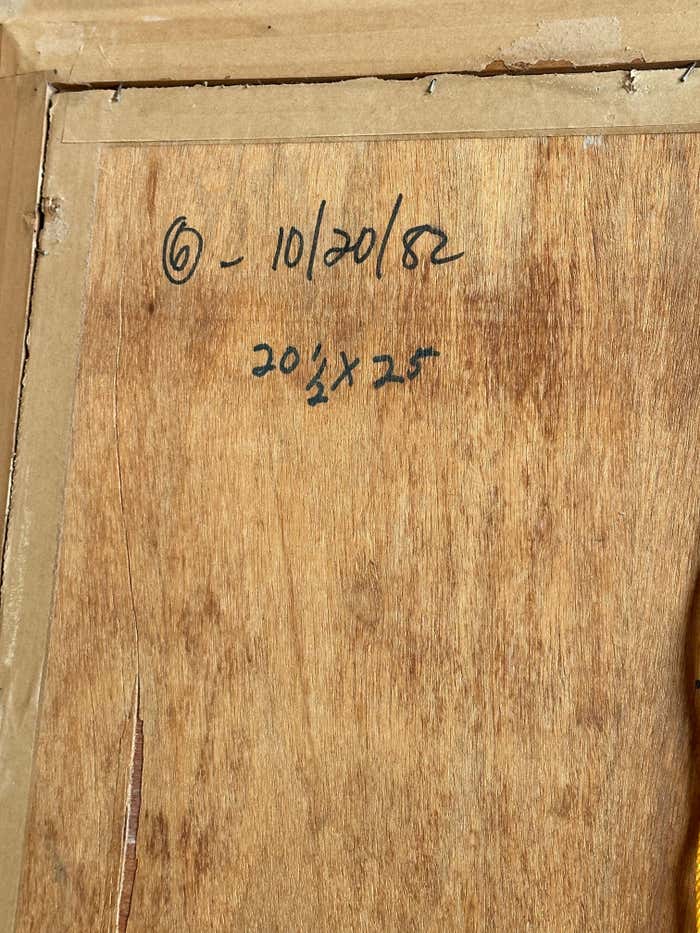 ⑥ - 10/20/82
20 1/2 x 25